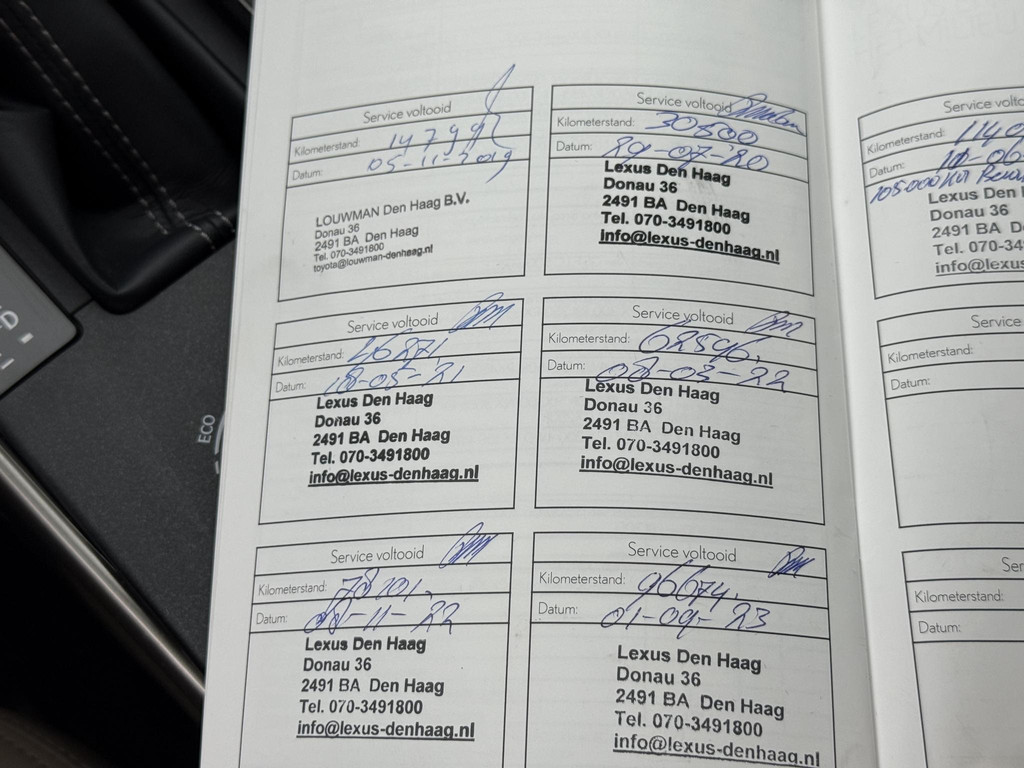 Service voltooid
Kilometerstand:
Datum: 05-11-2019
LOUWMAN Den Haag B.V.
Donau 36
2491 BA Den Haag
Tel. 070-3491800
toyota@louwman-denhaag.nl
Service voltooid
Kilometerstand: 30800
Datum: 29-07-20
Lexus Den Haag
Donau 36
2491 BA Den Haag
Tel. 070-3491800
info@lexus-denhaag.nl
Service voltooid
Kilometerstand: 46271,
Datum: 18-05-21
Lexus Den Haag
Donau 36
2491 BA Den Haag
Tel. 070-3491800
info@lexus-denhaag.nl
Service voltooid
Kilometerstand: 62596,
Datum: 02-03-22
Lexus Den Haag
Donau 36
2491 BA Den Haag
Tel. 070-3491800
info@lexus-denhaag.nl
Service voltooid
Kilometerstand: 78101,
Datum: 08-11-22
Lexus Den Haag
Donau 36
2491 BA Den Haag
Tel. 070-3491800
info@lexus-denhaag.nl
Service voltooid
Kilometerstand: 96674,
Datum: 01-09-23
Lexus Den Haag
Donau 36
2491 BA Den Haag
Tel. 070-3491800
info@lexus-denhaag.nl
Service volto
Kilometerstand:
Datum:
105.000 KM
Lexus Den
Donau 36
2491 BA De
Tel. 070-34
info@lexus
Service
Kilometerstand:
Datum:
Ser
Kilometerstand:
Datum:
ECO